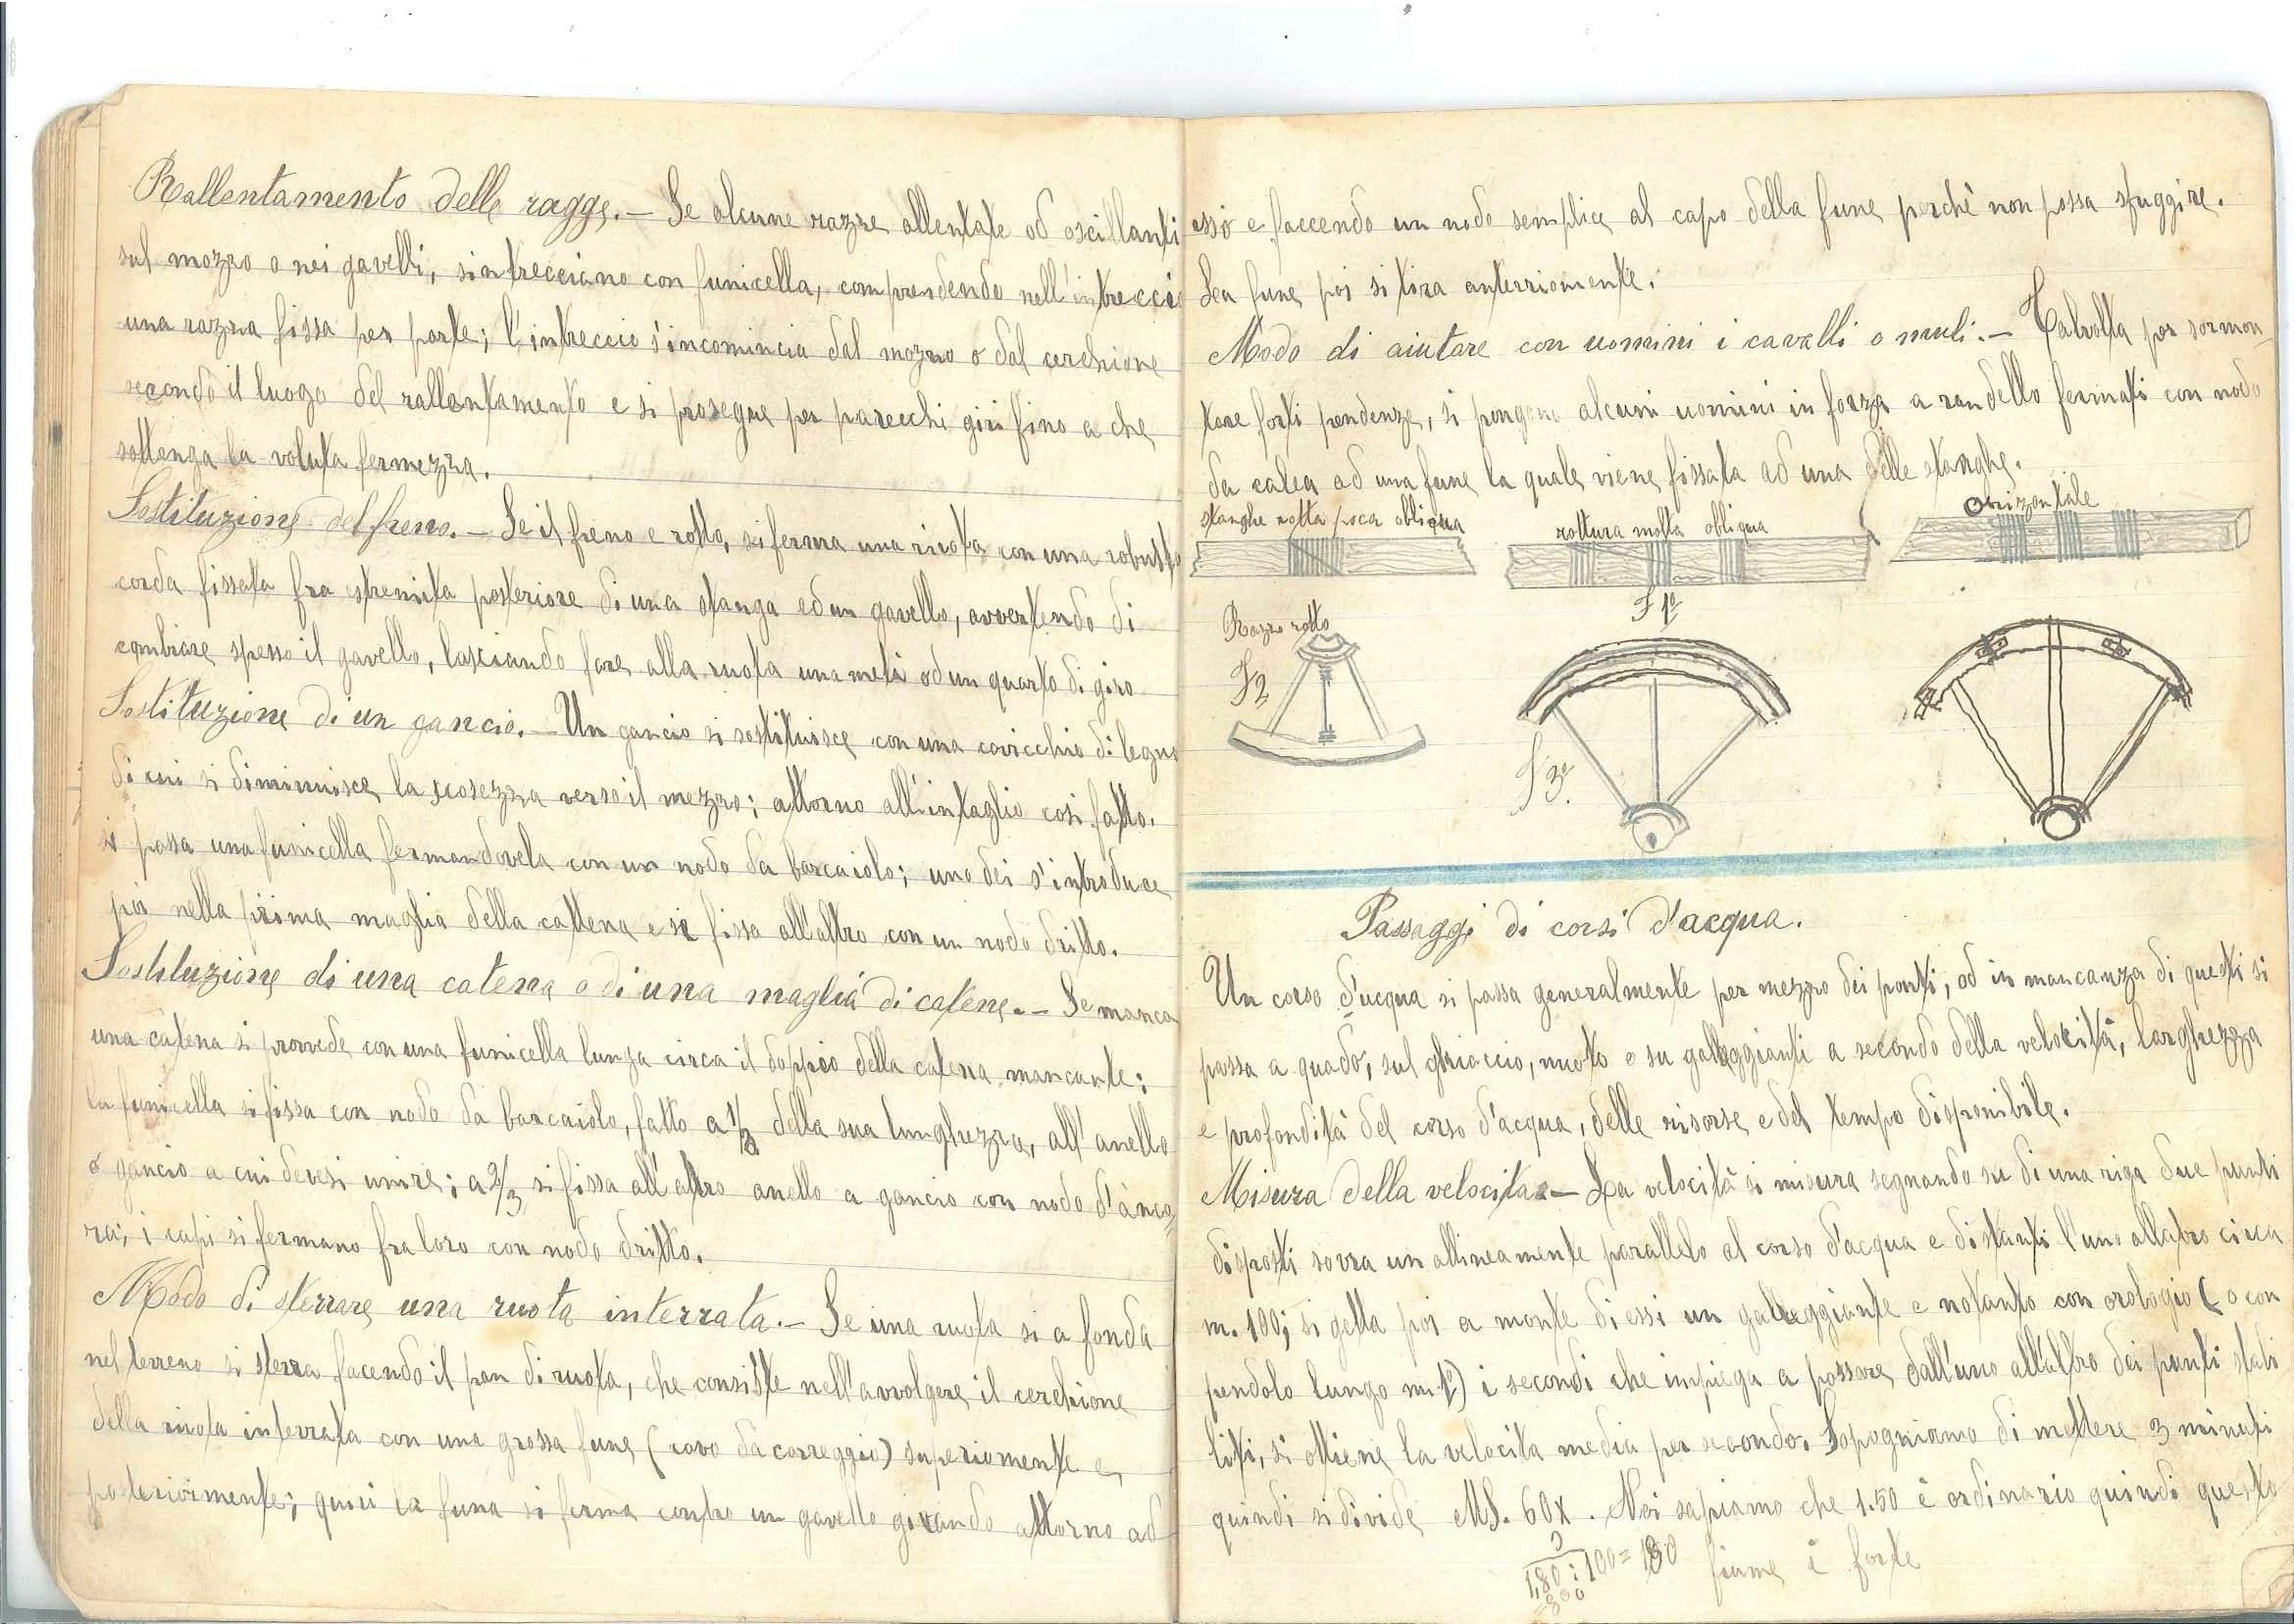 Rallentamento delle ragge. — Se alcune razze allentate od oscillanti
sul mozzo o nei gavelli, sintrecciano con funicella, comprendendo nell'intreccio
una razza fissa per parte; l'intreccio s'incomincia dal mozzo o dal cerchione
secondo il luogo del rallentamento e si prosegue per parecchi giri fino a che
sottenga la voluta fermezza.
Sostituzione del freno. — Se il freno e rotto, si ferma una ruota con una robusta
corda fissata fra estremita posteriore di una stanga ed un gavello, avvertendo di
cambiare spesso il gavello, lasciando fare alla ruota una metà od un quarto di giro
Sostituzione di un gancio. — Un gancio si sostituisce con una cavicchio di legno
di cui si diminuisce la grosezza verso il mezzo; attorno all'intaglio così fatto.
si passa una funicella fermandovela con un nodo da barcaiolo; uno dei s'introduce
poi nella prima maglia della cattena e si fissa all'altro con un nodo dritto.
Sostituzione di una catena o di una maglia di catene. — Se manca
una catena si provvede con una funicella lunga circa il doppio della catena mancante;
la funicella si fissa con nodo da barcaiolo, fatto a 1/3 della sua lunghezza, all'anello
o gancio a cui devesi unire; a 2/3 si fissa all'altro anello a gancio con nodo d'ànco-
ra; i capi si fermano fra loro con nodo dritto.
Modo di sterrare una ruota interrata. — Se una ruota si a fonda
nel terreno si sterra facendo il pan di ruota, che consiste nell'avvolgere il cerchione
della ruota interrata con una grossa fune (cavo da carreggio) superiomente e
posteriormente; quindi la funa si ferma contro un gavello girando attorno ad
esso e faccendo un nodo semplice al capo della fune perchè non possa sfuggire.
Lea fune poi si tira anterriomente.
Modo di aiutare con uomini i cavalli o muli. — Talvolta per sormon-
tare forti pendenze, si pongono alcuni uomini in forza a randello fermati con nodo
da calea ad una fune la quale viene fissata ad una delle stanghe.
stanghe rotta poca obliqua
rottura molta obliqua
Orizzontale
F 1º
Razza rotto
F 2
F 3º
Passaggi di corsi d'acqua.
Un corso d'acqua si passa generalmente per mezzo dei ponti, od in mancanza di questi si
passa a guado, sul ghiaccio, nuoto o su galleggianti a secondo della velocità, larghezza
e profondità del corso d'acqua, delle risorse e del tempo disponibile.
Misura della velocita. — La velocità si misura segnando su di una riga due punti
disposti sovra un allineamente parallelo al corso d'acqua e distanti l'uno allatro circa
m. 100; si getta poi a monte di essi un galleggiante e notanto con orologio (o con
pendolo lungo m. 1) i secondi che impiega a passare dall'uno all'altro dei punti stabi
liti, si ottiene la velocita media per secondo. Sopogniamo di mettere 3 minuti
quindi si divide MS. 60x. Noi sapiamo che 1.50 è ordinario quindi questo
3
1,80:100=180 fiume è forte